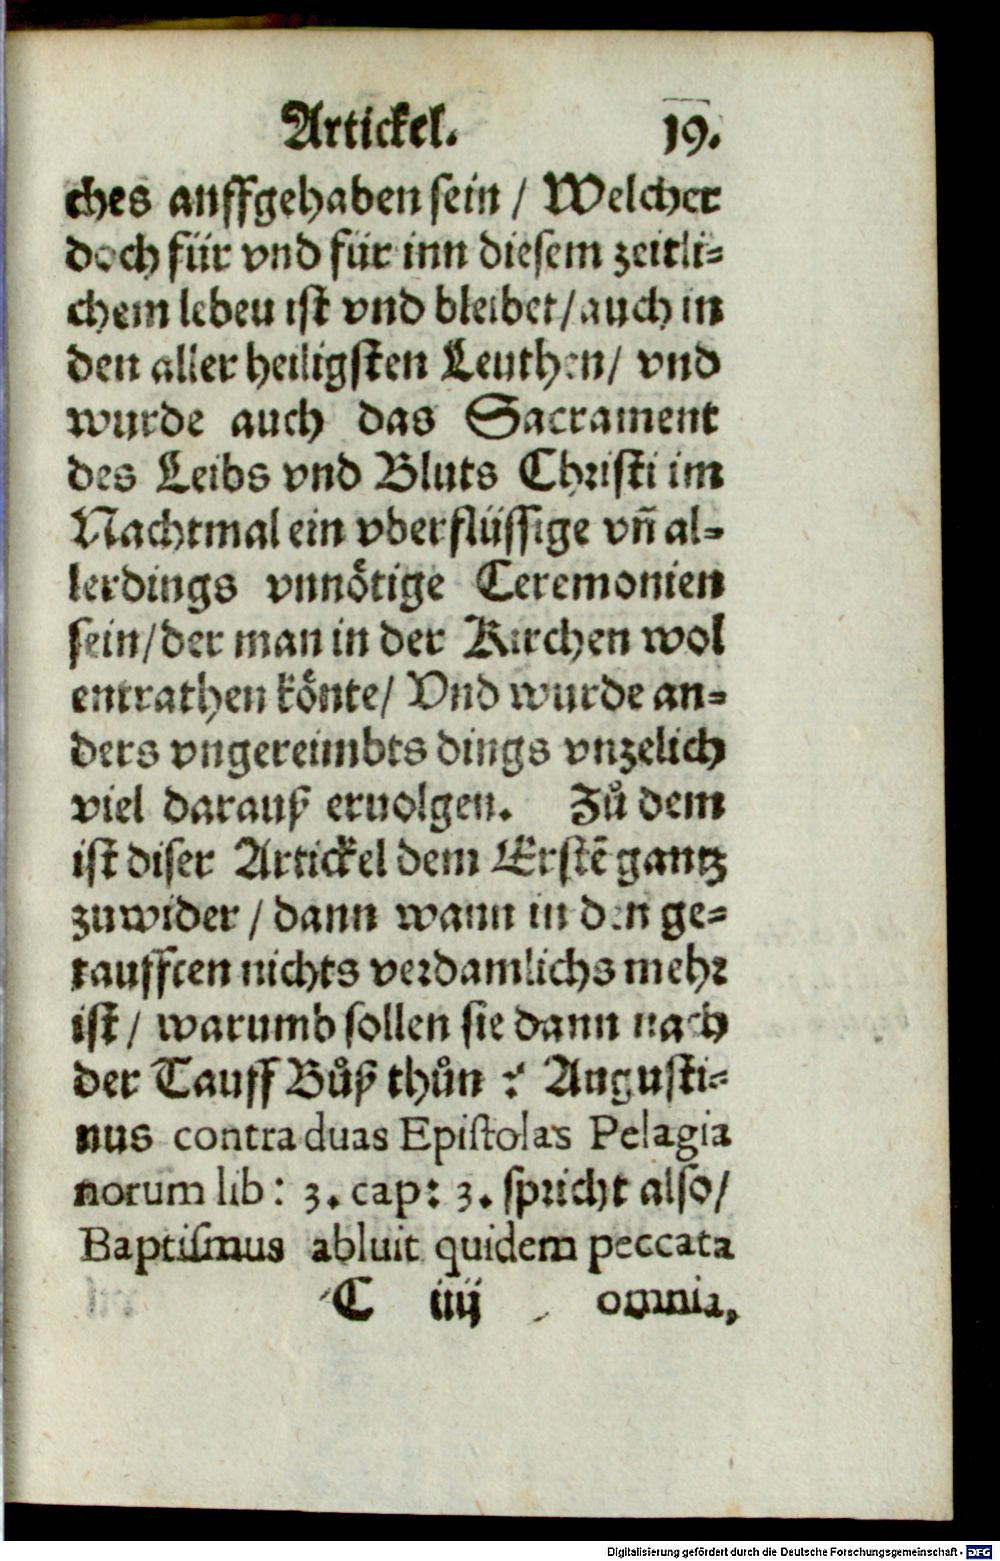 Artickel. 19.
ches auffgehaben sein / Welcher
doch für vnd für inn diesem zeitli⸗
chem lebeu ist vnd bleibet / auch in
den aller heiligsten Leuthen / vnd
wurde auch das Sacrament
des Leibs vnd Bluts Christi im
Nachtmal ein vberflüssige vñ al⸗
lerdings vnnötige Ceremonien
sein / der man in der Kirchen wol
entrathen könte / Vnd wurde an⸗
ders vngereimbts dings vnzelich
viel darauß eruolgen. Zů dem
ist diser Artickel dem Erstē gantz
zuwider / dann wann in den ge⸗
taufften nichts verdamlichs mehr
ist / warumb sollen sie dann nach
der Tauff Bůß thůn ? Augusti⸗
nus contra duas Epistolas Pelagia
norum lib: 3. cap: 3. spricht also /
Baptismus abluit quidem peccata
C iiij omnia,
Digitalisierung gefördert durch die Deutsche Forschungsgemeinschaft - DFG